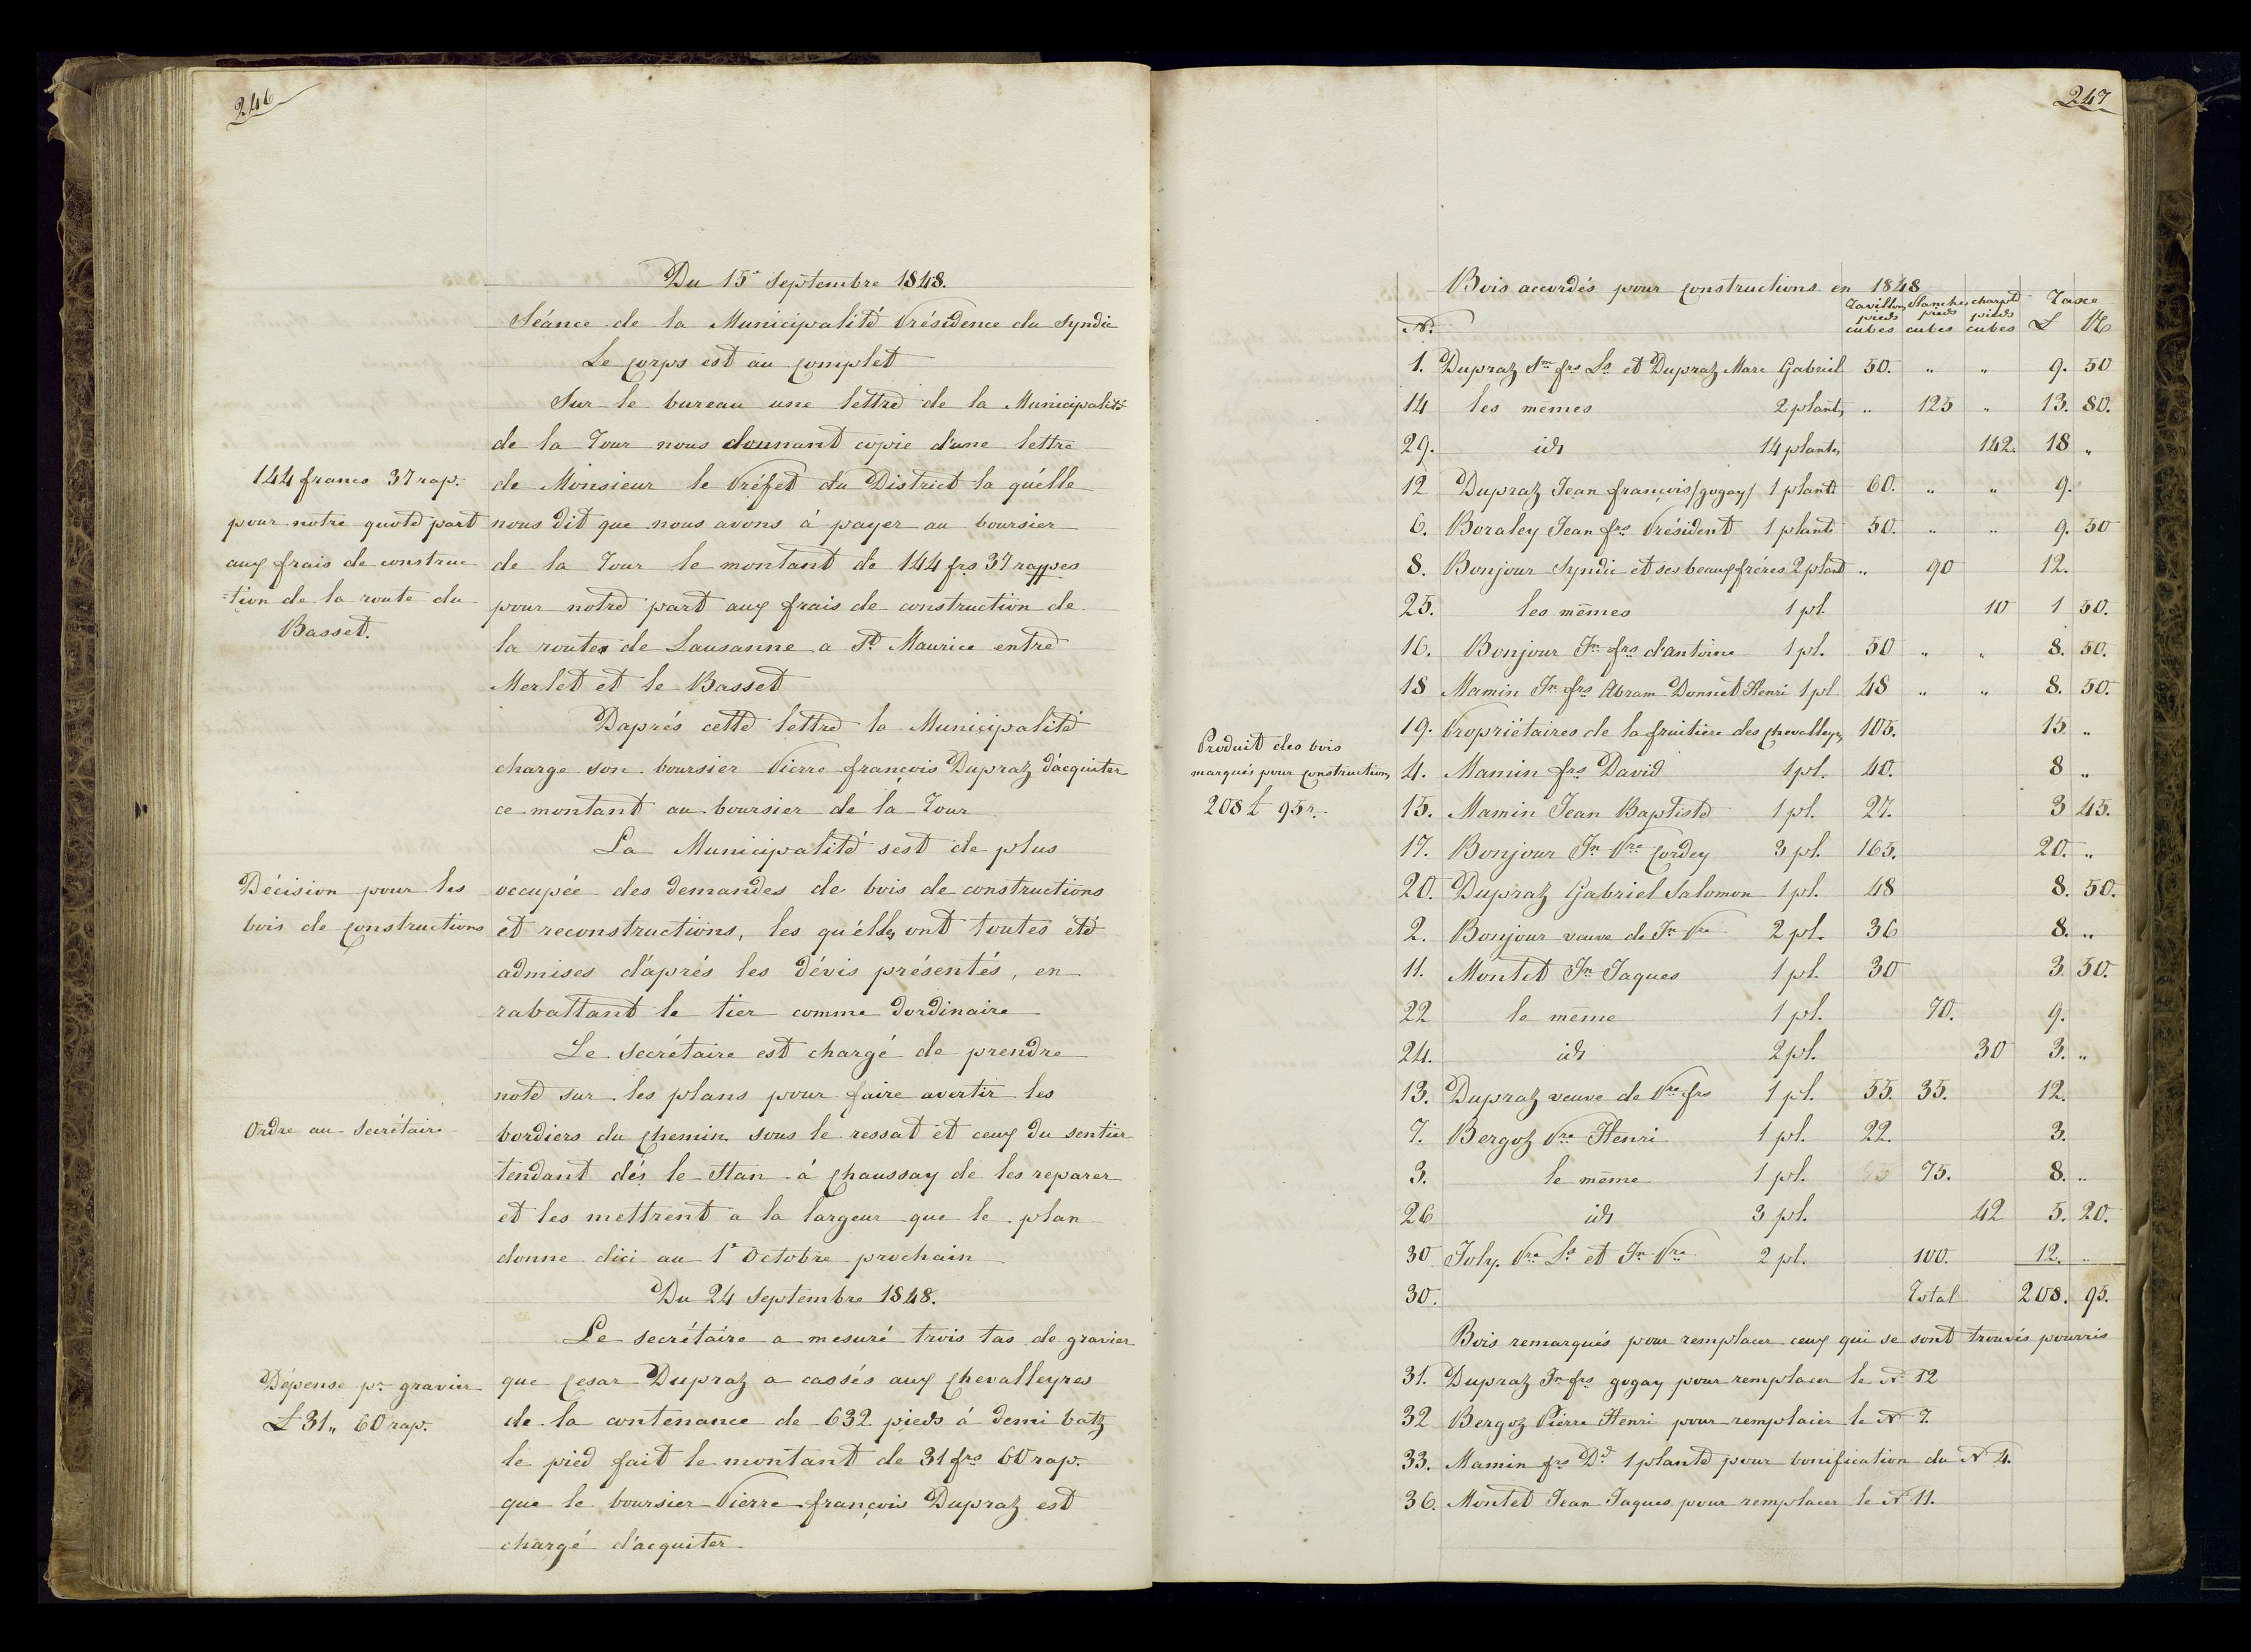 246
Du 15e Septembre 1848.
Séance de la Municipalité Présidence du Syndic
Le Corps est au Complet
Sur le bureau une lettre de la Municipalité
de la Tour nous donnant copie d'une lettre
144 francs 37 rap.
de Monsieur le Préfet du District la quélle
pour notre quote part
nous dit que nous avons à payer au boursier
aux frais de construc
de la Tour le montant de 144 frs 37 rappes
=tion de la route du
pour notre part aux frais de construction de
Basset.
la route de Lausanne a St Maurice entre
Merlet et le Basset
Daprés cette lettre la Municipalité
charge son boursier Pierre françois Dupraz d'acquiter
ce montant au boursier de la Tour
La Municipalité s'est de plus
Décision pour les
occupée des demandes de bois de constructions
bois de Constructions
et reconstructions, les quélles ont toutes été
admises d'aprés les dévis présentés, en
rabattant le tier comme dordinaire
Le Secrétaire est chargé de prendre
note sur les plans pour faire avertir les
Ordre au Secrétaire
bordiers du Chemin sous le ressat et ceux du sentier
tendant dés le Stan à Chaussay de les reparer
et les mettrent a la largeur que le plan
donne dici au 1e Octobre prochain
Du 24 Septembre 1848.
Le secrétaire a mesuré trois tas de gravier
Dépense pr gravier
que Cesar Dupraz a cassés aux Chevalleyres
L 31,, 60 rap.
de la contenance de 632 pieds à demi batz
le pied fait le montant de 31 frs 60 rap.
que le boursier Pierre françois Dupraz est
chargé d'acquiter
247
Bois accordés pour Constructions en 1848
Tavillons pieds cubes Planches pieds cubes charpte pieds cubes Taxe
No L R
1. Dupraz Jn frs Ls et Dupraz Marc Gabriel 50. " " 9. 50
14 les memes 2 plants " 125 " 13. 80.
29. ids 14 plants 142. 18 "
12 Dupraz Jean françois /gogay/ 1 plante 60. " " 9.
6. Boraley Jean frs Président 1 plant 50. " " 9. 50
8. Bonjour Syndic et ses beaux fréres 2 plant " 90 12.
25. les mêmes 1 pl. 10 1 50.
16. Bonjour Jn frs d'antoine 1 pl. 50 " " 8. 50.
18 Mamin Jn frs Abram Donnet Henri 1 pl 48 " " 8. 50.
19. Propriétaires de la fruitière des Chevalleyres 105. 15 "
Produit des bois
marqués pour Construction
208 L 95 r.
4. Mamin frs David 1 pl. 40. 8 "
15. Mamin Jean Baptiste 1 pl. 27. 3 45.
17. Bonjour Jn Pre Cordey 3 pl. 165. 20. "
20. Dupraz Gabriel Salomon 1 pl. 48 8. 50.
2. Bonjour veuve de Jn Pre 2 pl. 36 8. "
11. Montet Jn Jaques 1 pl. 30 3. 50.
22 le même 1 pl. 70. 9.
24. ids 2 pl. 30 3. "
13. Dupraz veuve de Pre frs 1 pl. 55. 35. 12.
7. Bergoz Pre Henri 1 pl. 22. 3.
3. le même 1 pl. 75. 8. "
26 ids 3 pl. 42 5. 20.
30 Joly. Pre Ls et Jn Pre 2 pl. 100. 12. "
30. Total 208. 95.
Bois remarqués pour remplacer ceux qui se sont trouvés pourris
31. Dupraz Jn frs gogay pour remplacer le No 12
32 Bergoz Pierre Henri pour remplacer le No 7.
33. Mamin frs Dd 1 plante pour bonification du No 4.
36. Montet Jean Jaques pour remplacer le No 11.